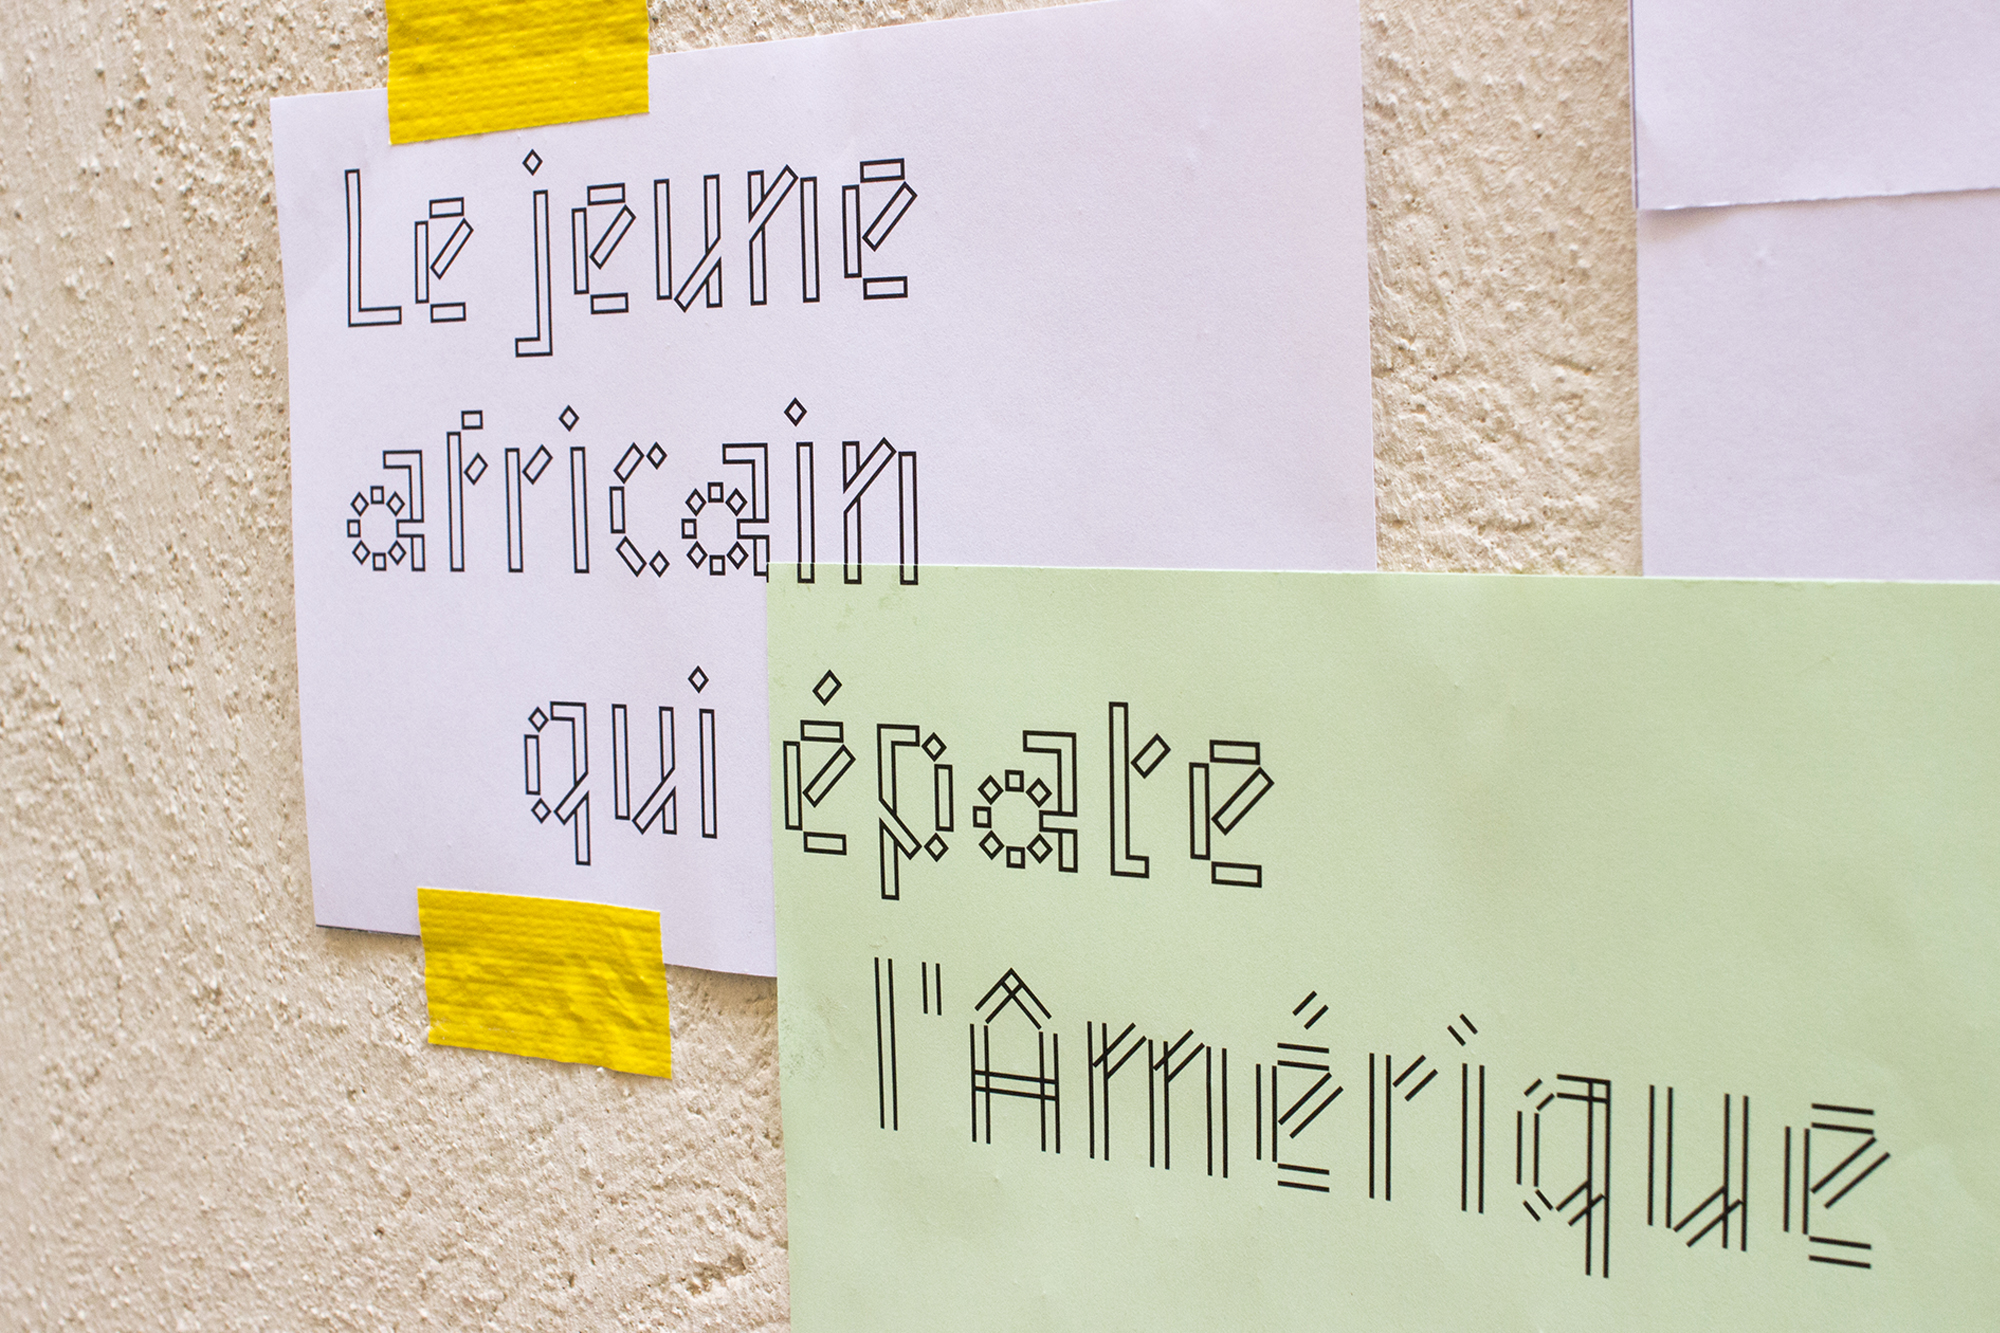 Le jeune
africain
qui épate
l'Amérique